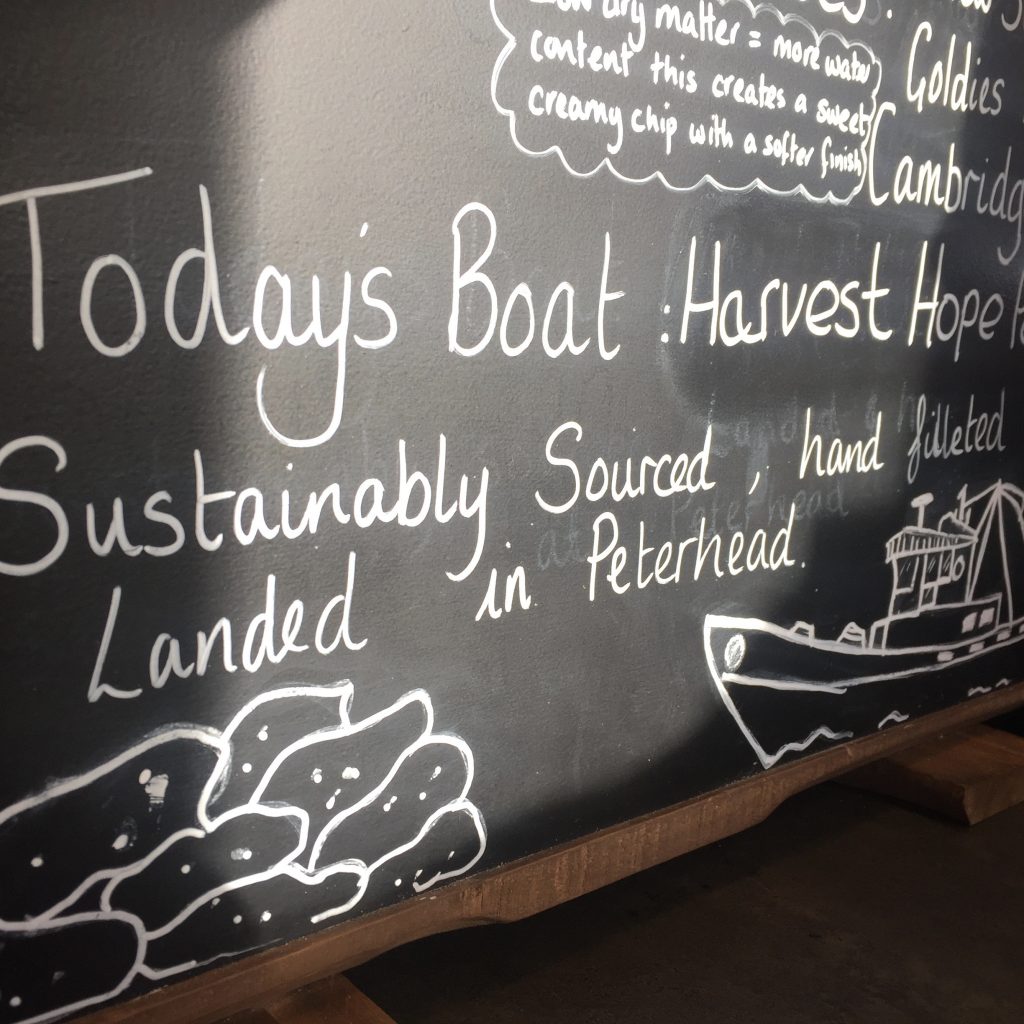 dry matter = more water
content this creates a sweet
creamy chip with a softer finish
Goldies
Today's Boat : Harvest Hope
Sustainably Sourced , hand filleted
Landed in Peterhead.